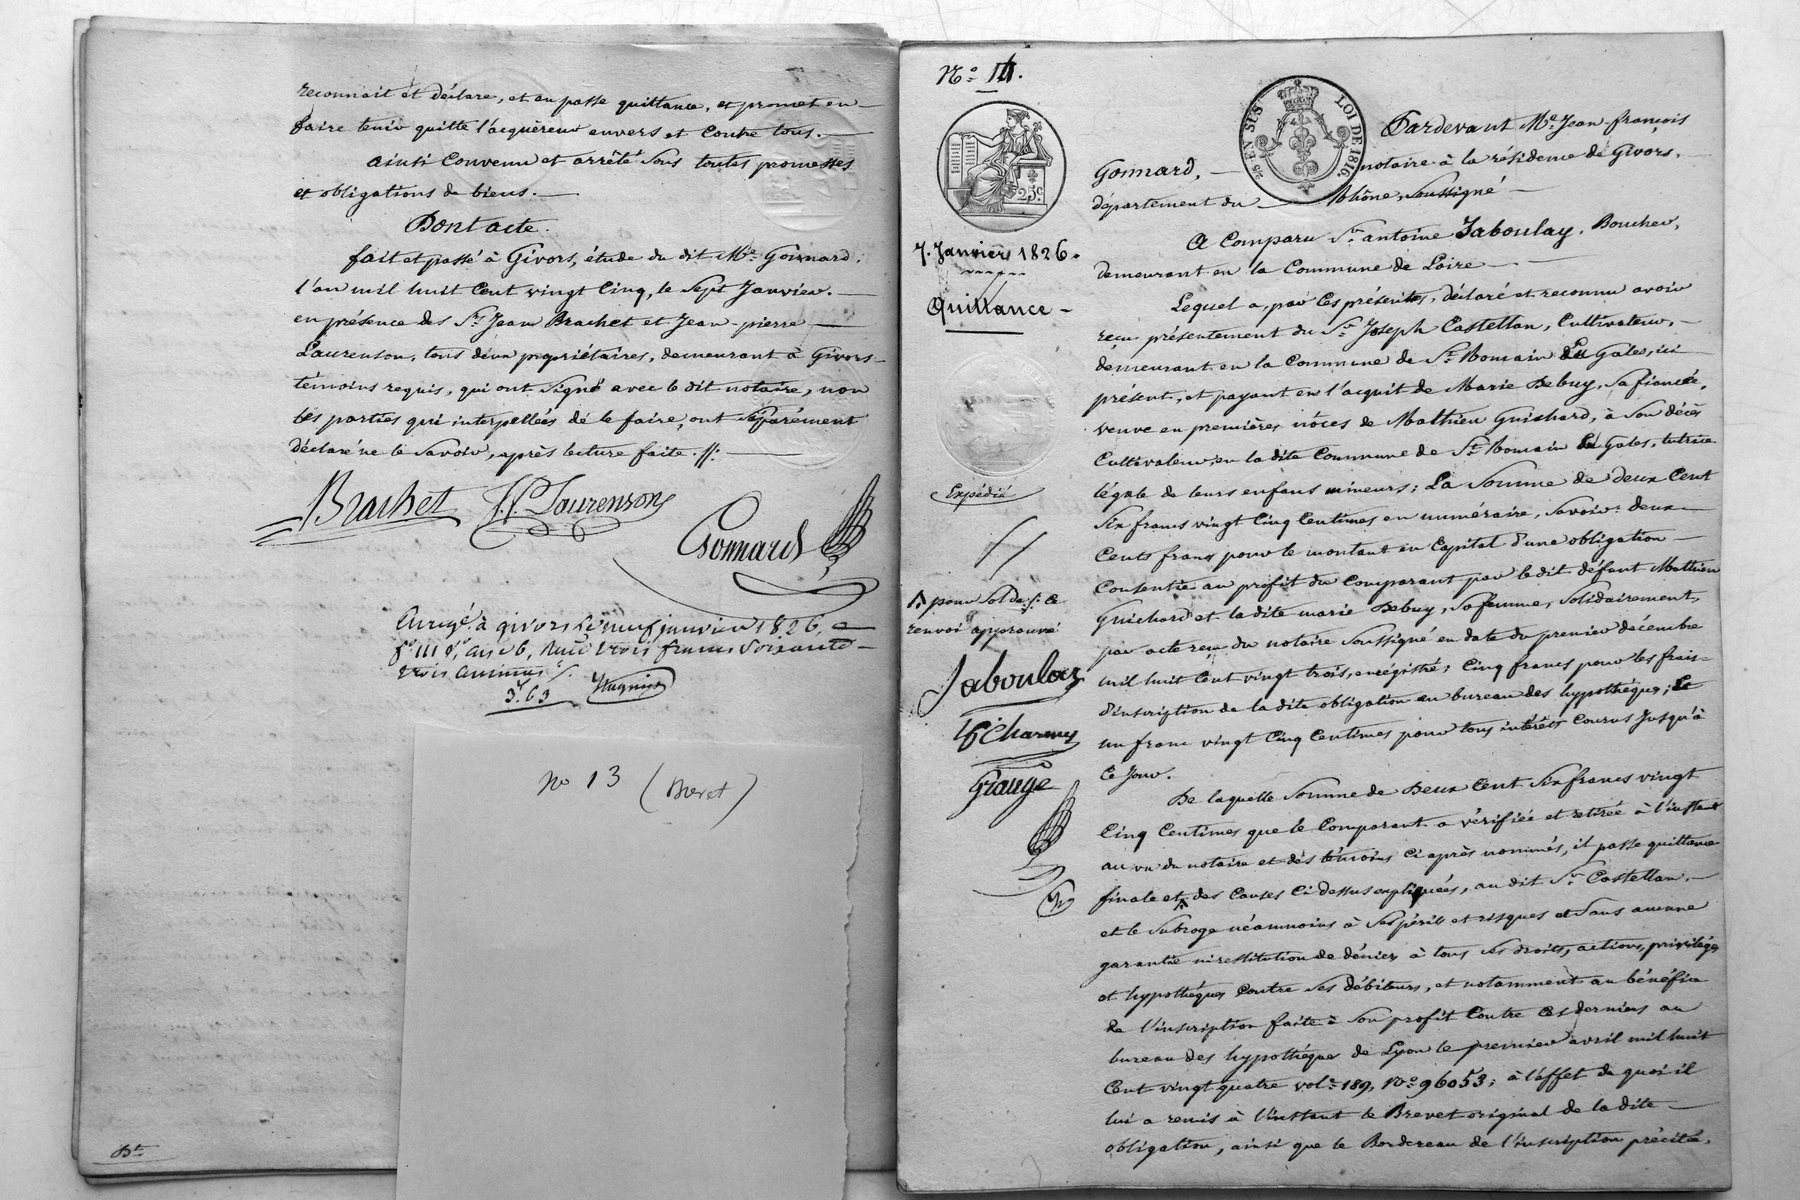 reconnait et déclare, et en passe quittance, et promet en
faire tenir quitte l'acquéreur envers et contre tous.
ainsi convenu et arrêté sous toutes promesses
et obligations de biens.
Dont acte.
fait et passé à Givors, étude du dit Me. Gonnard,
l'an mil huit cent vingt Cinq, le Sept Janvier.
en présence des Srs. Jean Brachet et Jean-pierre
Laurenson, tous deux propriétaires, demeurant à Givors
témoins requis, qui ont signé avec le dit notaire, non
les parties qui interpellées de le faire, ont séparément
déclaré ne le savoir, après lecture faite.
Brachet J. P. Laurenson
Gonnard
Enregé. à givors le neuf janvier 1826,
fo. 111 vo, case 6, Reçu trois francs soixante
trois centimes
3f. 63
no 13 (Brevet)
No. 14.
25 EN SUS LOI DE 1816.
25c.
7. Janvier 1826.
Quittance
Expédié
pour solde ce
renvoi approuvé
Jaboulay
Charmy
Grange
Pardevant Me. Jean françois
Gonnard, notaire à la résidence de Givors,
département du Rhône, soussigné
A Comparu Sr. antoine Jaboulay, Boucher,
demeurant en la Commune de Loire
Lequel a, par ces présentes, déclaré et reconnu avoir
reçu présentement du Sr. Joseph Castellan, Cultivateur,
demeurant en la Commune de St. Romain en Gales, ici
présent, et payant en l'acquit de Marie Debuy, sa fiancée,
veuve en premières nôces de Mathieu Guichard, à son décès
Cultivateur, en la dite Commune de St. Romain en Gales, tutrice
légale de leurs enfans mineurs; La Somme de deux Cent
Six francs vingt Cinq Centimes en numéraire, savoir: deux
Cents francs pour le montant en Capital d'une obligation
Consentie au profit du Comparant par le dit défunt Mathieu
Guichard et la dite marie Debuy, sa femme, solidairement,
par acte reçu du notaire Soussigné en date du premier décembre
mil huit Cent vingt trois, enregistré; Cinq francs pour les frais
d'inscription de la dite obligation au bureau des hypothèques; Et
un franc vingt Cinq Centimes pour tous intérêts courus jusqu'à
Ce jour.
De laquelle Somme de Deux Cent Six francs vingt
Cinq Centimes que le Comparant a vérifiée et retirée à l'instant
au vu du notaire et des témoins Ci après nommés, il passe quittance
finale et des Causes Ci dessus expliquées, au dit Sr. Castellan.
et le Subroge néanmoins à ses péril et risques et Sans aucune
garantie ni restitution de denier à tous ses droits, actions, privilèges
et hypothèques Contre ses débiteurs, et notamment au bénéfice
de l'inscription faite à Son profit Contre Ces derniers au
bureau des hypothèques de Lyon le premier avril mil huit
Cent vingt quatre vol. 189, No. 96053; à l'effet de quoi il
lui a remis à l'instant le Brevet original de la dite
obligation, ainsi que le Bordereau de l'inscription précité.